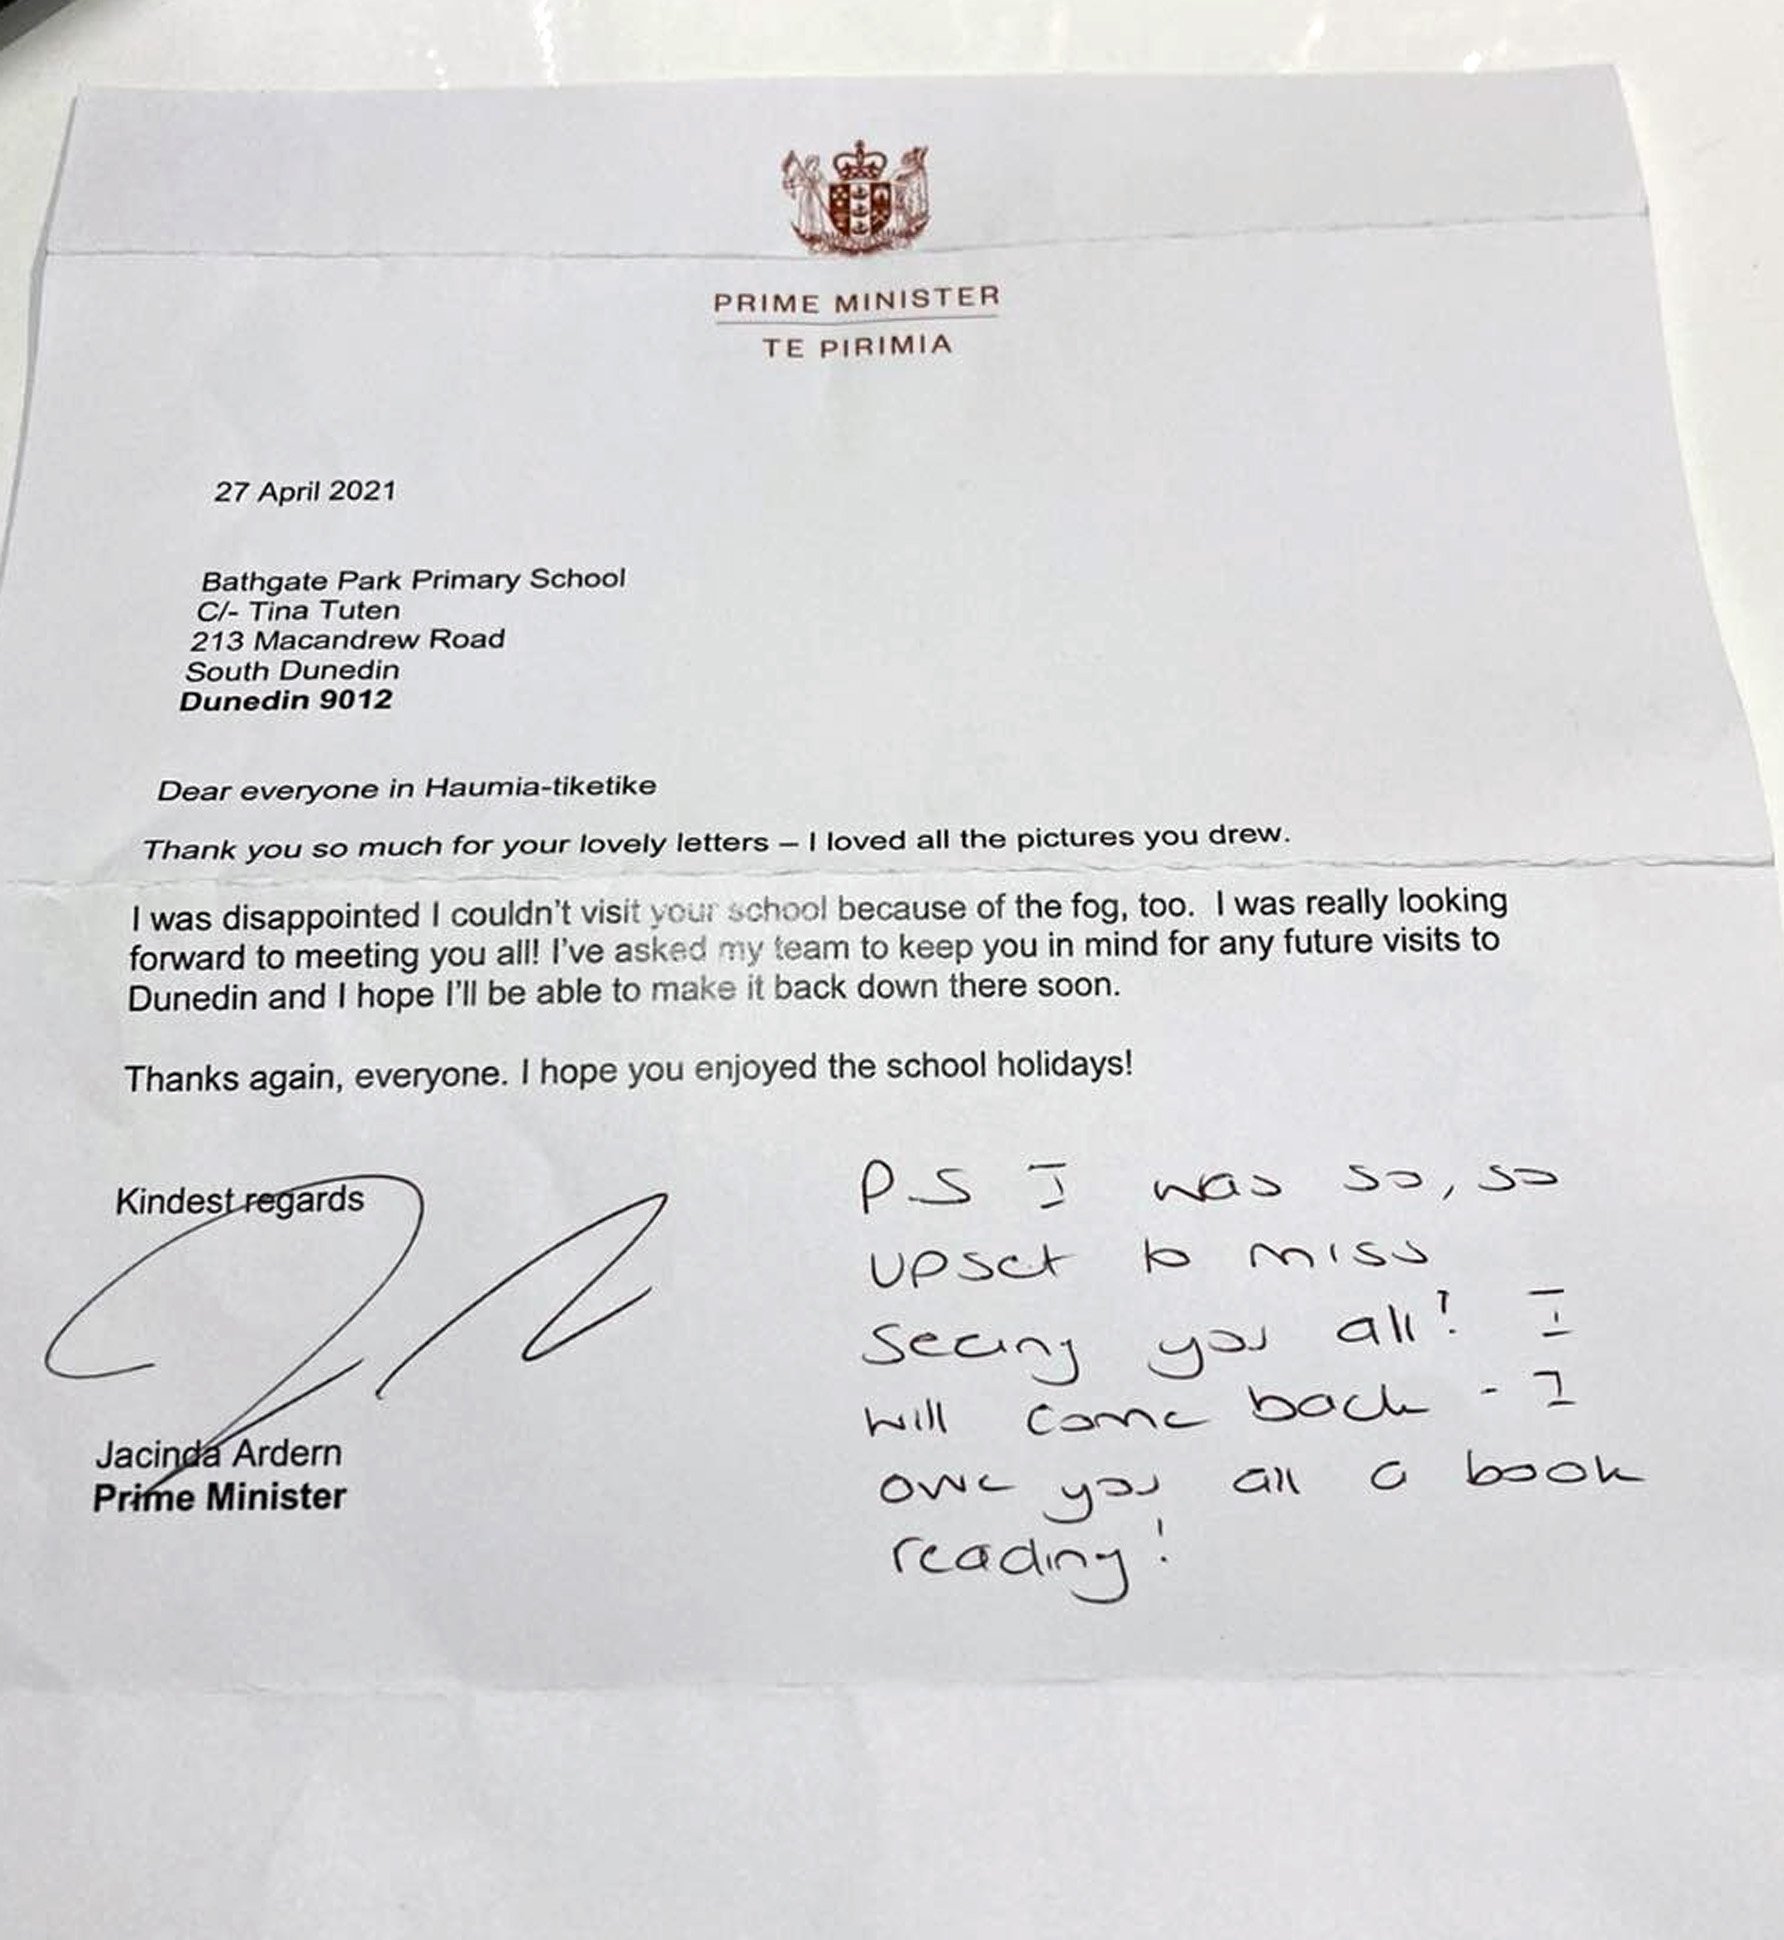 PRIME MINISTER
TE PIRIMIA
27 April 2021
Bathgate Park Primary School
C/- Tina Tuten
213 Macandrew Road
South Dunedin
Dunedin 9012
Dear everyone in Haumia-tiketike
Thank you so much for your lovely letters – I loved all the pictures you drew.
I was disappointed I couldn't visit your school because of the fog, too. I was really looking
forward to meeting you all! I've asked my team to keep you in mind for any future visits to
Dunedin and I hope I'll be able to make it back down there soon.
Thanks again, everyone. I hope you enjoyed the school holidays!
Kindest regards
Jacinda Ardern
Prime Minister
PS I was so, so
upset to miss
seeing you all! I
will come back - I
owe you all a book
reading!